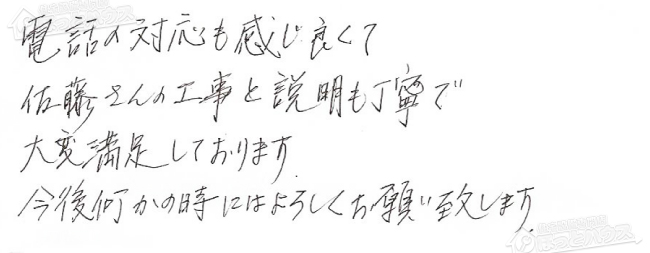 電話の対応も感じ良くて
佐藤さんの工事と説明も丁寧で
大変満足しております。
今後何かの時にはよろしくお願い致します。